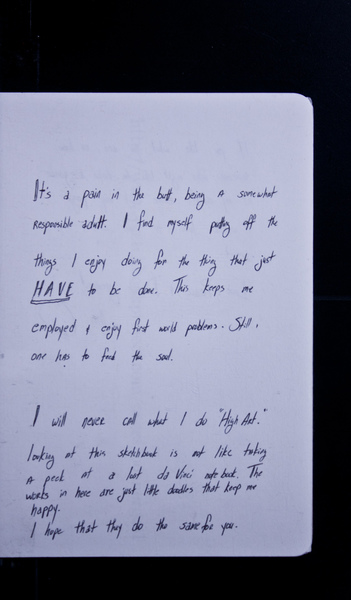 It's a pain in the butt, being a somewhat
responsible adult. I find myself putting off the
things I enjoy doing for the thing that just
HAVE to be done. This keeps me
employed & enjoy first world problems. Still,
one has to feed the soul.
I will never call what I do "High Art."
looking at this sketchbook is not like taking
a peek at a lost da Vinci notebook. The
works in here are just little doodles that keep me
happy.
I hope that they do the same for you.